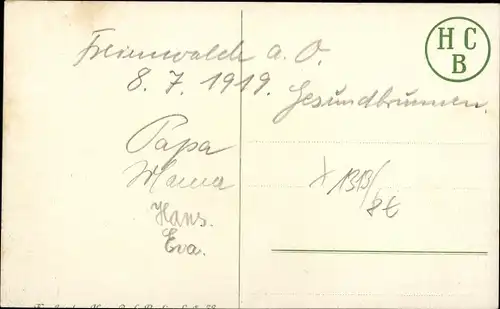 Freienwalde a. O.
8. 7. 1919.
Gesundbrunnen.
Papa
Mama
Hans.
Eva.
H C
B